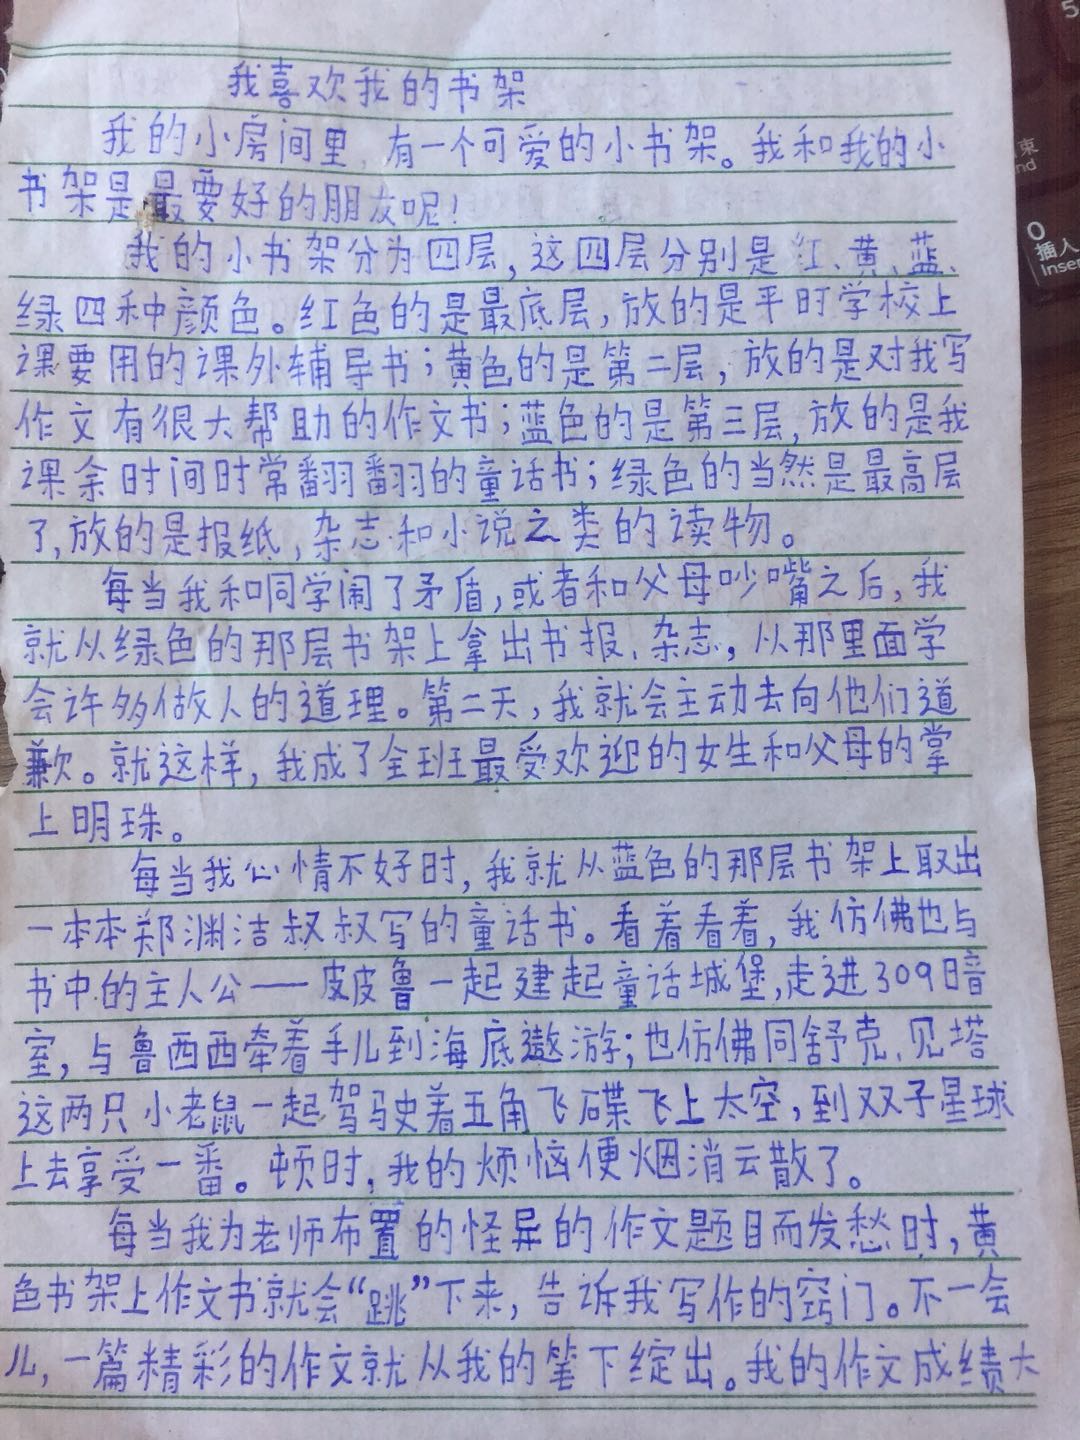 我喜欢我的书架
我的小房间里,有一个可爱的小书架。我和我的小
书架是最要好的朋友呢!
我的小书架分为四层,这四层分别是红、黄、蓝、
绿四种颜色。红色的是最底层,放的是平时学校上
课要用的课外辅导书;黄色的是第二层,放的是对我写
作文有很大帮助的作文书;蓝色的是第三层,放的是我
课余时间时常翻翻的童话书;绿色的当然是最高层
了,放的是报纸,杂志和小说之类的读物。
每当我和同学闹了矛盾,或者和父母吵嘴之后,我
就从绿色的那层书架上拿出书报、杂志,从那里面学
会许多做人的道理。第二天,我就会主动去向他们道
歉。就这样,我成了全班最受欢迎的女生和父母的掌
上明珠。
每当我心情不好时,我就从蓝色的那层书架上取出
一本本郑渊洁叔叔写的童话书。看着看着,我仿佛也与
书中的主人公——皮皮鲁一起建起童话城堡,走进309暗
室,与鲁西西牵着手儿到海底遨游;也仿佛同舒克、见塔
这两只小老鼠一起驾驶着五角飞碟飞上太空,到双子星球
上去享受一番。顿时,我的烦恼便烟消云散了。
每当我为老师布置的怪异的作文题目而发愁时,黄
色书架上作文书就会“跳”下来,告诉我写作的窍门。不一会
儿,一篇精彩的作文就从我的笔下绽出。我的作文成绩大
插入
Inser
0
5
束
nd